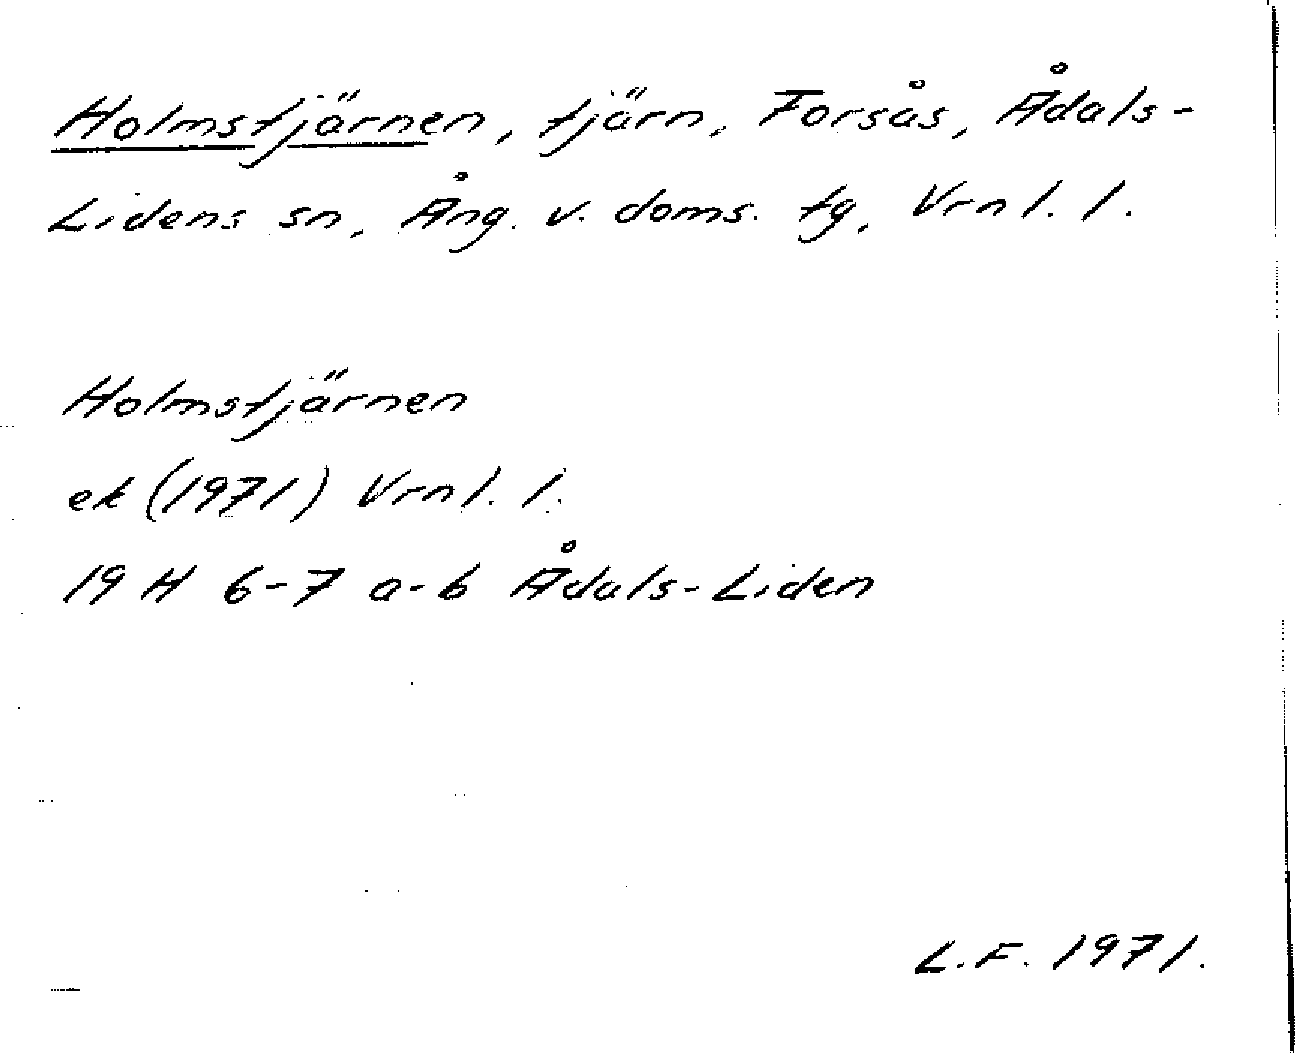 Holmstjärnen, tjärn, Forsås, Ådals-
Lidens sn, Ång. v. doms. tg, Vrnl. l.
Holmstjärnen
ek (1971) Vrnl. l.
19 H 6-7 a-b Ådals-Liden
L.F. 1971.